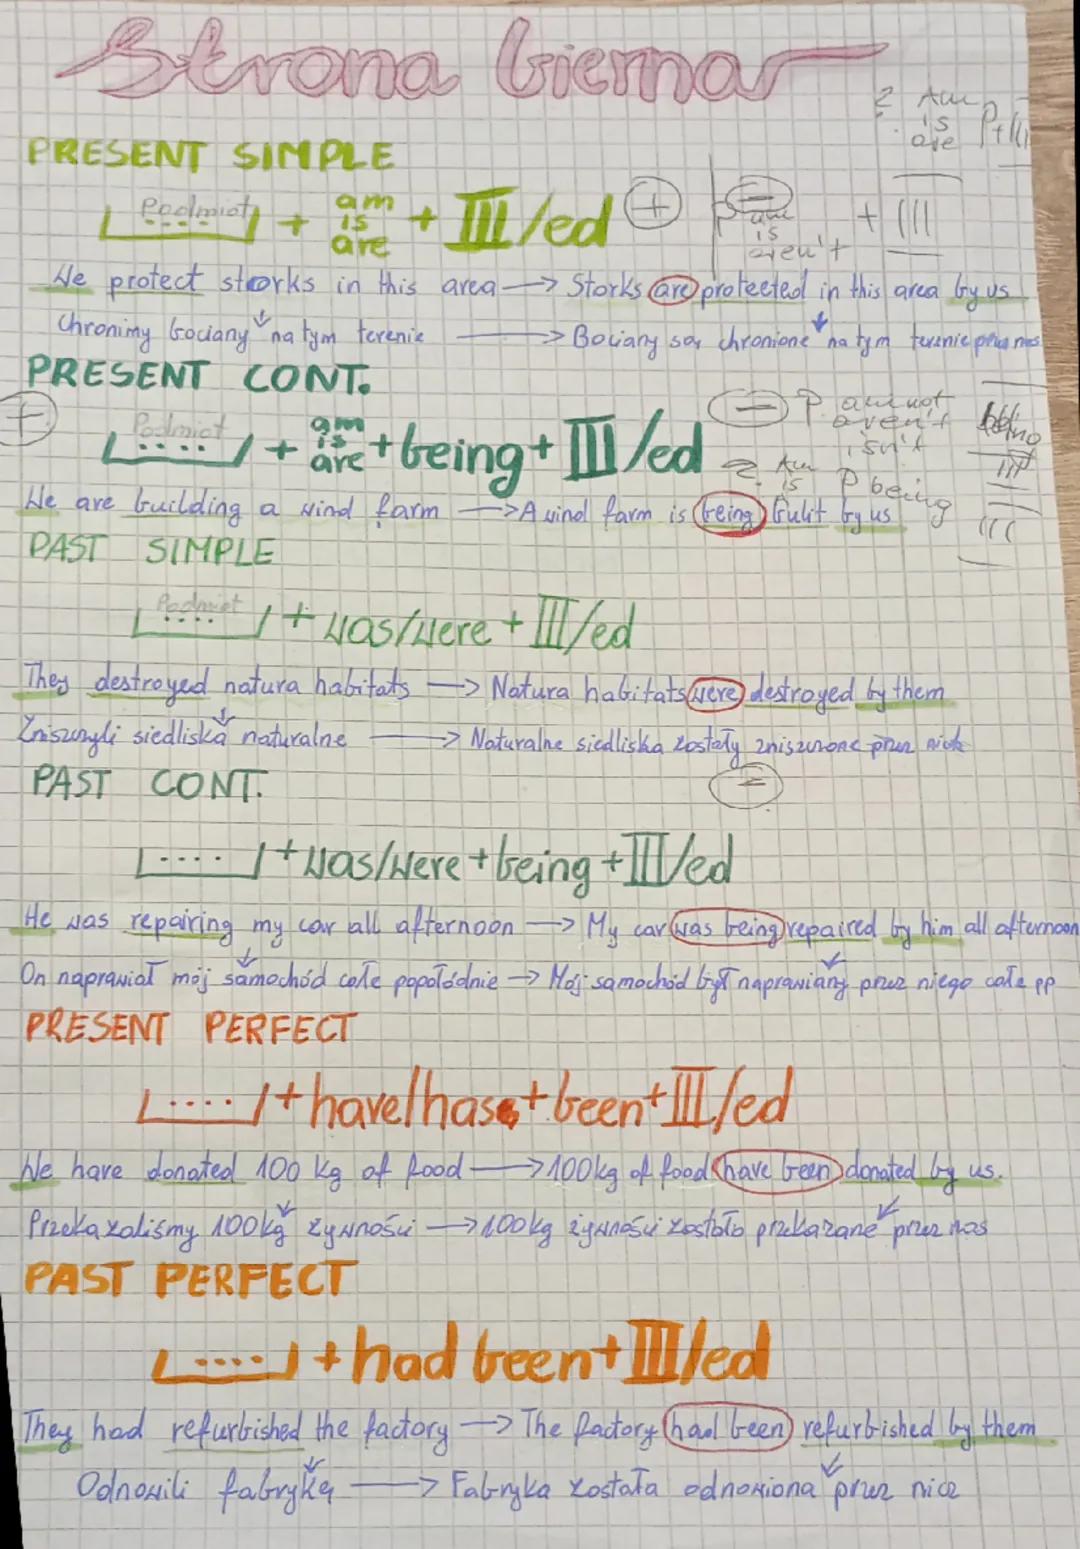 Strona bierna
? Am
is
are P + III
PRESENT SIMPLE
Podmiot + am
is
are + III/ed + P -
is
aren't + III
We protect storks in this area → Storks are protected in this area by us
Chronimy bociany na tym terenie → Bociany są chronione na tym terenie przez nas
PRESENT CONT.
+ Podmiot + am
is
are + being + III/ed
- P am not
aren't
isn't being
III
? Am
is P being III
We are building a wind farm → A wind farm is being bulit by us
PAST SIMPLE
Podmiot + was/were + III/ed
They destroyed natura habitats → Natura habitats were destroyed by them
Zniszczyli siedliska naturalne → Naturalne siedliska zostały zniszczone przez nich
PAST CONT. -
.... + was/were + being + III/ed
He was repairing my car all afternoon → My car was being repaired by him all afternoon
On naprawiał mój samochód całe popołódnie → Mój samochód był naprawiany przez niego całe pp
PRESENT PERFECT
.... + have/has + been + III/ed
We have donated 100 kg of food → 100kg of food have been donated by us.
Przekazaliśmy 100kg żywności → 100kg żywności zostało przekazane przez nas
PAST PERFECT
.... + had been + III/ed
They had refurbished the factory → The factory had been refurbished by them
Odnowili fabrykę → Fabryka została odnowiona przez nich